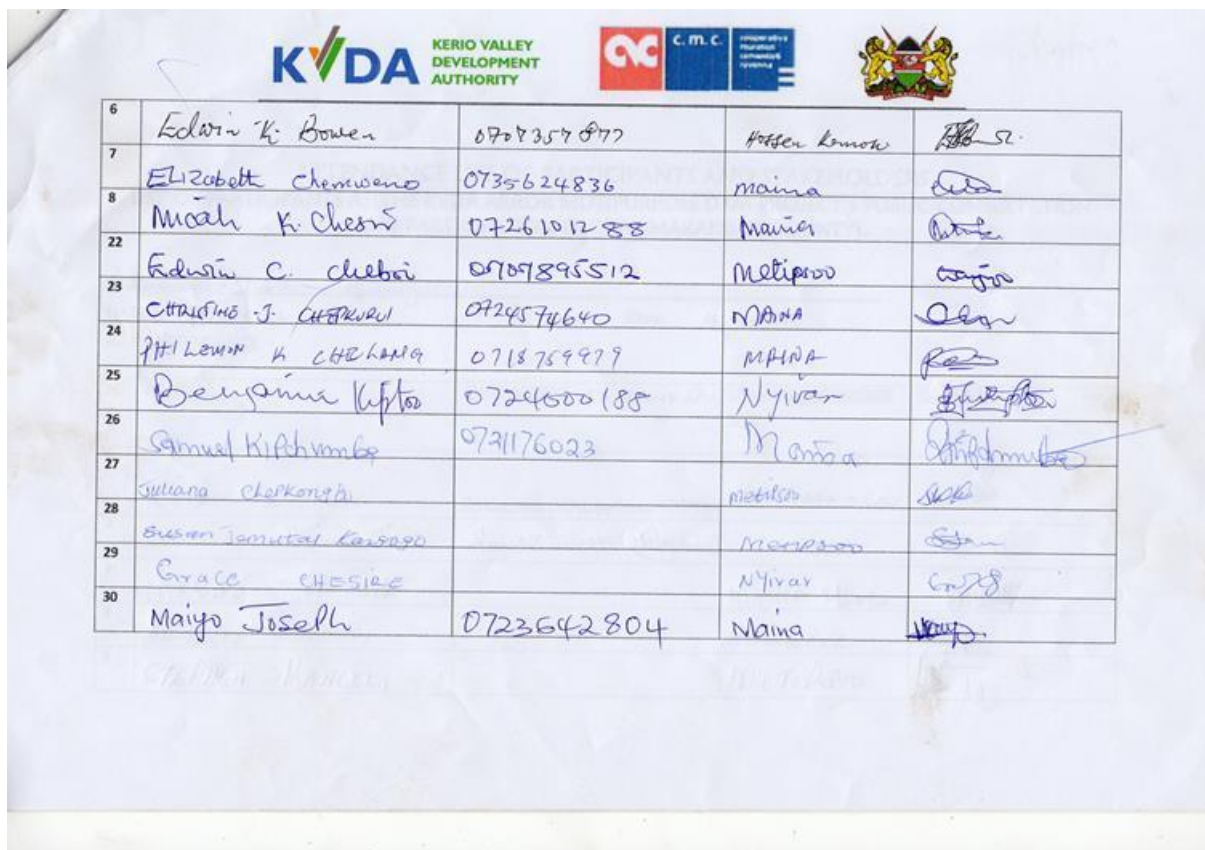 KVDA KERIO VALLEY
DEVELOPMENT
AUTHORITY
c.m.c.
6 Edwin K. Bowen 0707357877
7 Elizabeth Chemweno 0735624836 maina
8 K. Chesir 0726101288
22 Edwin C. Cheboi 0707895512 Metipsoo
23 CHRISTINE J. CHEPKURUI 0724574640 MAINA
24 PHILEMON K CHELANG 0718759979 MAINA
25 Benjamin Kiptoo 0724600188 Nyivar
26 Samuel Kipchumba 0721176023 Maina
27 Juliana Chepkonga
28 Susan Jemutai
29 Grace CHESIRE Nyivar
30 Maiyo Joseph 0723642804 Maina